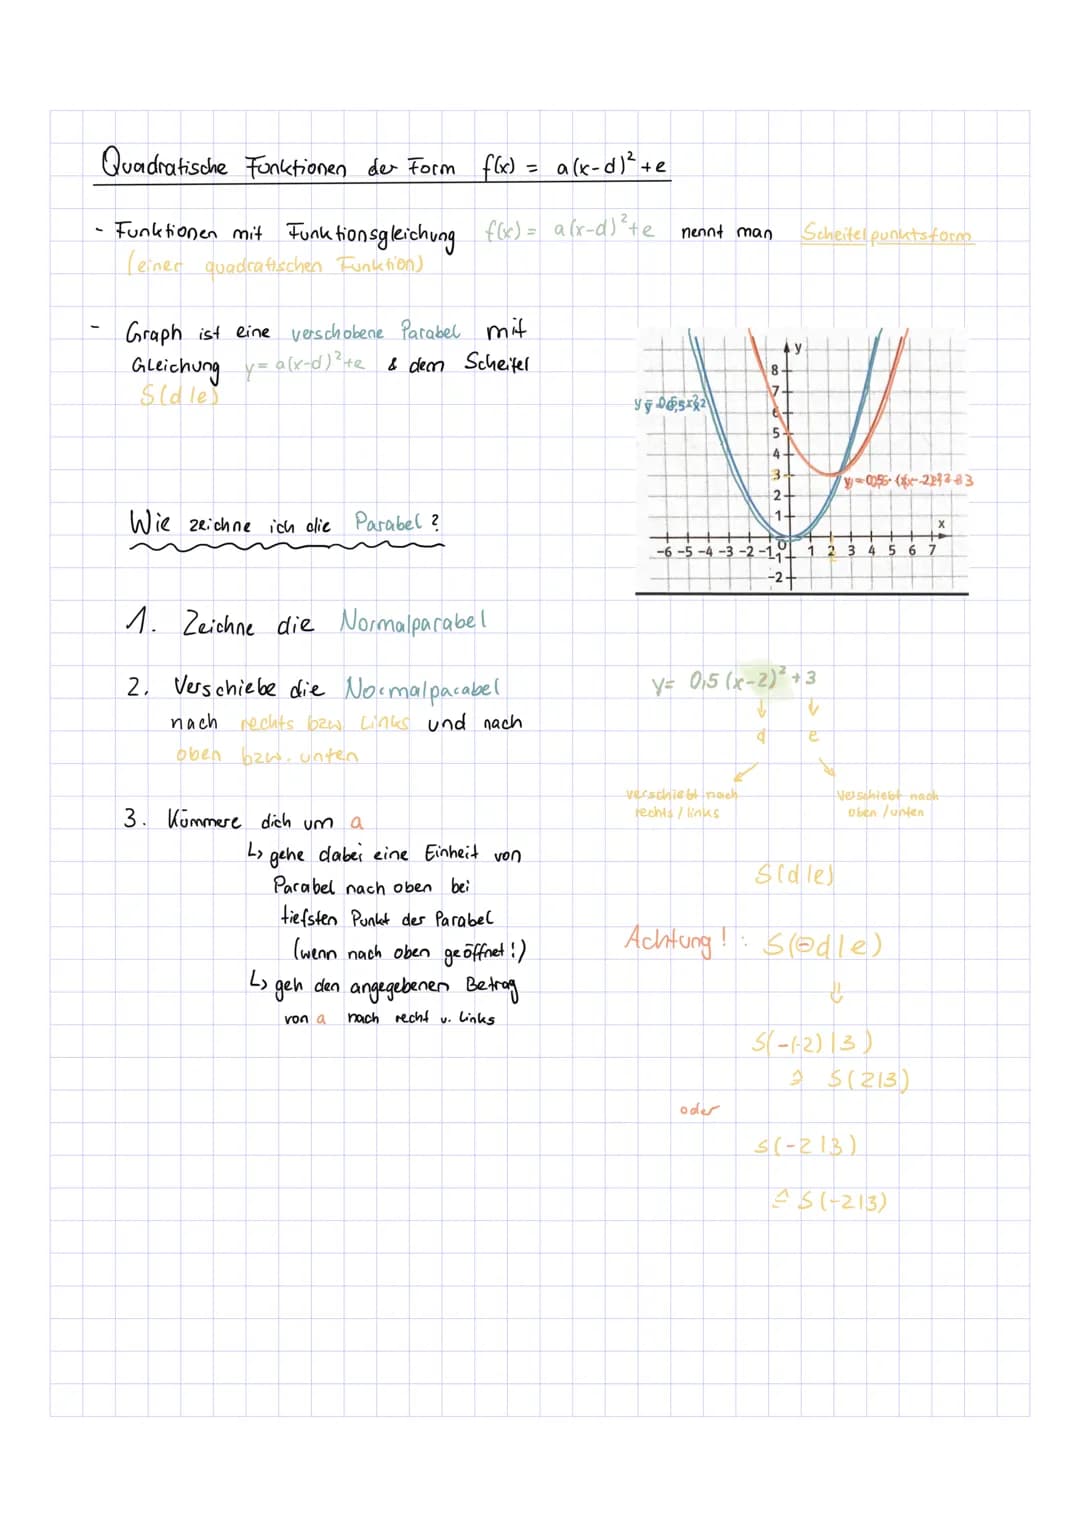 Quadratische Funktionen der Form f(x) = a(x-d)²+e
- Funktionen mit Funktionsgleichung f(x) = a(x-d)²+e nennt man Scheitelpunktsform
(einer quadratischen Funktion)
- Graph ist eine verschobene Parabel mit
Gleichung y= a(x-d)²+e & dem Scheitel
S(d|e)
y
8
7
6
5
4
3
2
1
x
-6 -5 -4 -3 -2 -1 0 1 2 3 4 5 6 7
-1
-2
Wie zeichne ich die Parabel?
1. Zeichne die Normalparabel
2. Verschiebe die Normalparabel
nach rechts bzw. Links und nach
oben bzw. unten
3. Kümmere dich um a
↳ gehe dabei eine Einheit von
Parabel nach oben bei
tiefsten Punkt der Parabel
(wenn nach oben geöffnet!)
↳ geh den angegebenen Betrag
von a nach recht u. Links
y= 0,5 (x-2)²+3
↓ ↓
d e
verschiebt nach
rechts / links
verschiebt nach
oben / unten
S(d|e)
Achtung! : S(⊖d|e)
⇓
S(-(-2)|3)
≙ S(2|3)
oder
S(-2|3)
≙ S(-2|3)